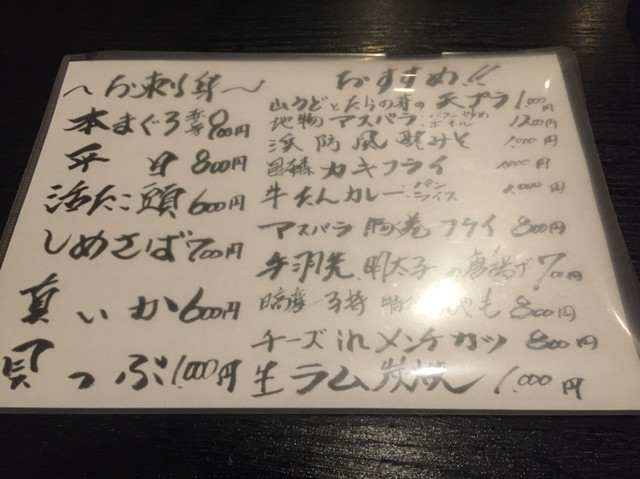 〜お刺身〜
本まぐろ 900円
平目 800円
活たこ頭 600円
しめさば 700円
真いか 600円
貝つぶ 1,000円
おすすめ!!
山うどとたらの芽の天プラ 1,000円
地物アスパラ・バター炒め・ボイル 1200円
浜防風 酢みそ 1,000円
カキフライ 1,000円
牛たんカレー・パン・ライス 1,000円
アスパラ豚巻フライ 800円
手羽先明太子の唐揚げ 700円
日高産 子持 800円
チーズinメンチカツ 800円
生ラム炭焼 1,000円